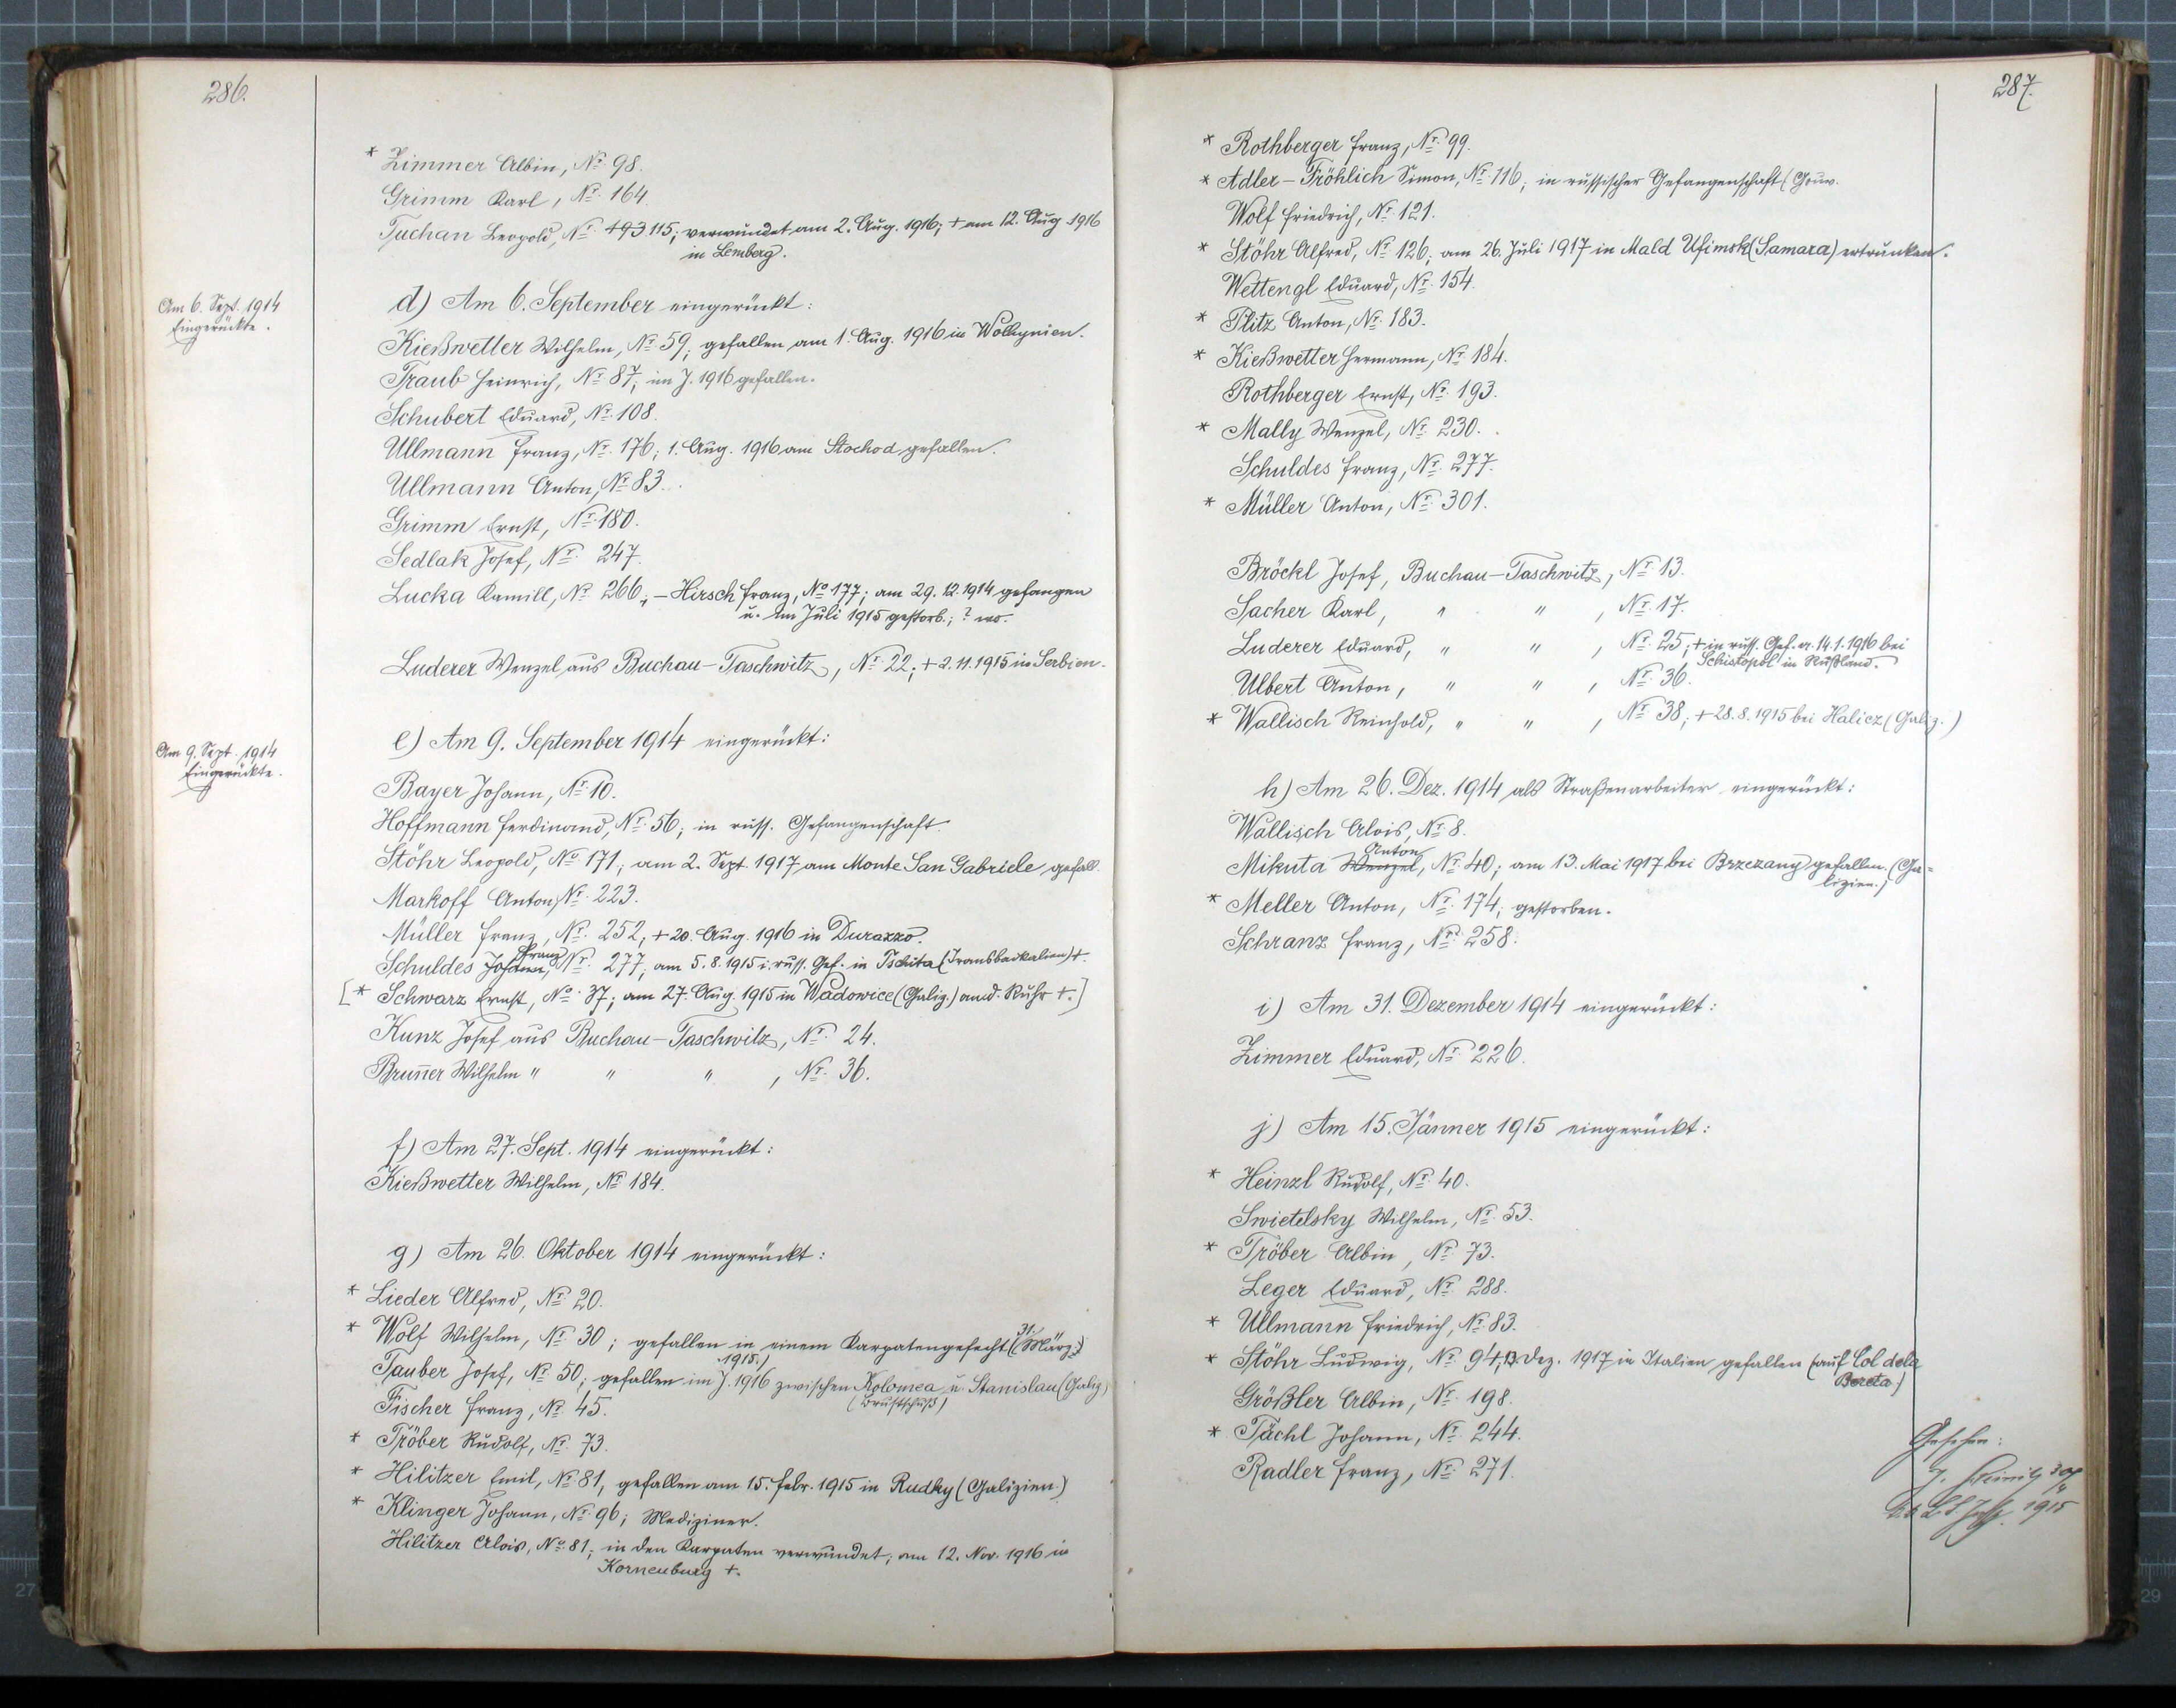 286.
* Zimmer Albin, Nr. 98.
Grimm Karl, Nr. 164.
Tuchan Leopold, Nr. 193 115; verwundet am 2. Aug. 1916; + am 12. Aug. 1916
in Lemberg.
Am 6. Sept. 1914
Eingerückte.
d) Am 6. September eingerückt:
Kießwetter Wilhelm, Nr. 59; gefallen am 1. Aug. 1916 in Wolhynien.
Traub Heinrich, Nr. 87; im J. 1916 gefallen.
Schubert Eduard, Nr. 108.
Ullmann Franz, Nr. 176; 1. Aug. 1916 am Stochod gefallen.
Ullmann Anton, Nr. 83.
Grimm Ernst, Nr. 180.
Sedlak Josef, Nr. 247.
Lucka Kamill, Nr. 266; – Hirsch Franz, No 177; am 29.12.1914 gefangen
u. im Juli 1915 gestorb.; ? wo.
Luderer Wenzel aus Buchau–Taschwitz, Nr. 22; + 2.11.1915 in Serbien.
Am 9. Sept. 1914
Eingerückte.
e) Am 9. September 1914 eingerückt:
Bayer Johann, Nr. 10.
Hoffmann Ferdinand, Nr. 56; in russ. Gefangenschaft.
Stöhr Leopold, No 171; am 2. Sept. 1917 am Monte San Gabriele gefall.
Markoff Anton, Nr. 223.
Müller Franz, Nr. 252, + 20. Aug. 1916 in Durazzo.
Franz
Schuldes Johann, Nr. 277, am 5.8.1915 i. russ. Gef. in Tschita (Transbaikalien) +.
[* Schwarz Ernst, No. 37; am 27. Aug. 1915 in Wadowice (Galiz.) an d. Ruhr +.]
Kunz Josef aus Buchau–Taschwitz, Nr. 24.
Bruner Wilhelm " " " , Nr. 36.
f) Am 27. Sept. 1914 eingerückt:
Kießwetter Wilhelm, Nr. 184.
g) Am 26. Oktober 1914 eingerückt:
* Lieder Alfred, Nr. 20.
* Wolf Wilhelm, Nr. 30; gefallen in einem Karpatengefecht (31. März
1915.)
Tauber Josef, Nr. 50; gefallen im J. 1916 zwischen Kolomea u. Stanislau (Galiz.)
(Brustschuß)
Fischer Franz, Nr. 45.
* Tröber Rudolf, Nr. 73.
* Hilitzer Emil, Nr. 81, gefallen am 15. Febr. 1915 in Rudky (Galizien.)
* Klinger Johann, Nr. 96; Mediziner.
Hilitzer Alois, No. 81; in den Karpaten verwundet; am 12. Nov. 1916 in
Korneuburg +.
287.
* Rothberger Franz, Nr. 99.
* Adler–Fröhlich Simon, Nr. 116; in russischer Gefangenschaft (Gouv.
Wolf Friedrich, Nr. 121.
* Stöhr Alfred, Nr. 126; am 26. Juli 1917 in Mald Ufimsk (Samara) ertrunken.
Wettengl Eduard, Nr. 154.
* Plitz Anton, Nr. 183.
* Kießwetter Hermann, Nr. 184.
Rothberger Ernst, Nr. 193.
* Mally Wenzel, Nr. 230.
Schuldes Franz, Nr. 277.
* Müller Anton, Nr. 301.
Bröckl Josef, Buchau–Taschwitz, Nr. 13.
Sacher Karl, " " , Nr. 17.
Luderer Eduard, " " , Nr. 25; + in russ. Gef. a. 14.1.1916 bei
Schistopol in Rußland.
Ulbert Anton, " " , Nr. 36.
* Wallisch Reinhold, " " , Nr. 38; + 28.8.1915 bei Halicz (Galiz.)
h) Am 26. Dez. 1914 als Straßenarbeiter eingerückt:
Wallisch Alois, Nr. 8.
Anton
Mikuta Wenzel, Nr. 40; am 13. Mai 1917 bei Brzezany gefallen. (Ga=
lizien.)
* Meller Anton, Nr. 174; gestorben.
Schranz Franz, Nr. 258.
i) Am 31. Dezember 1914 eingerückt:
Zimmer Eduard, Nr. 226.
j) Am 15. Jänner 1915 eingerückt:
* Heinzl Rudolf, Nr. 40.
Swietelsky Wilhelm, Nr. 53.
* Tröber Albin, Nr. 73.
Leger Eduard, Nr. 288.
* Ullmann Friedrich, Nr. 83.
* Stöhr Ludwig, Nr. 94, 13. Dez. 1917 in Italien gefallen (auf Col dela
Bereta.)
Größler Albin, Nr. 198.
* Tächl Johann, Nr. 244.
Radler Franz, Nr. 271.
Gesehen:
30/4
1915
27
29